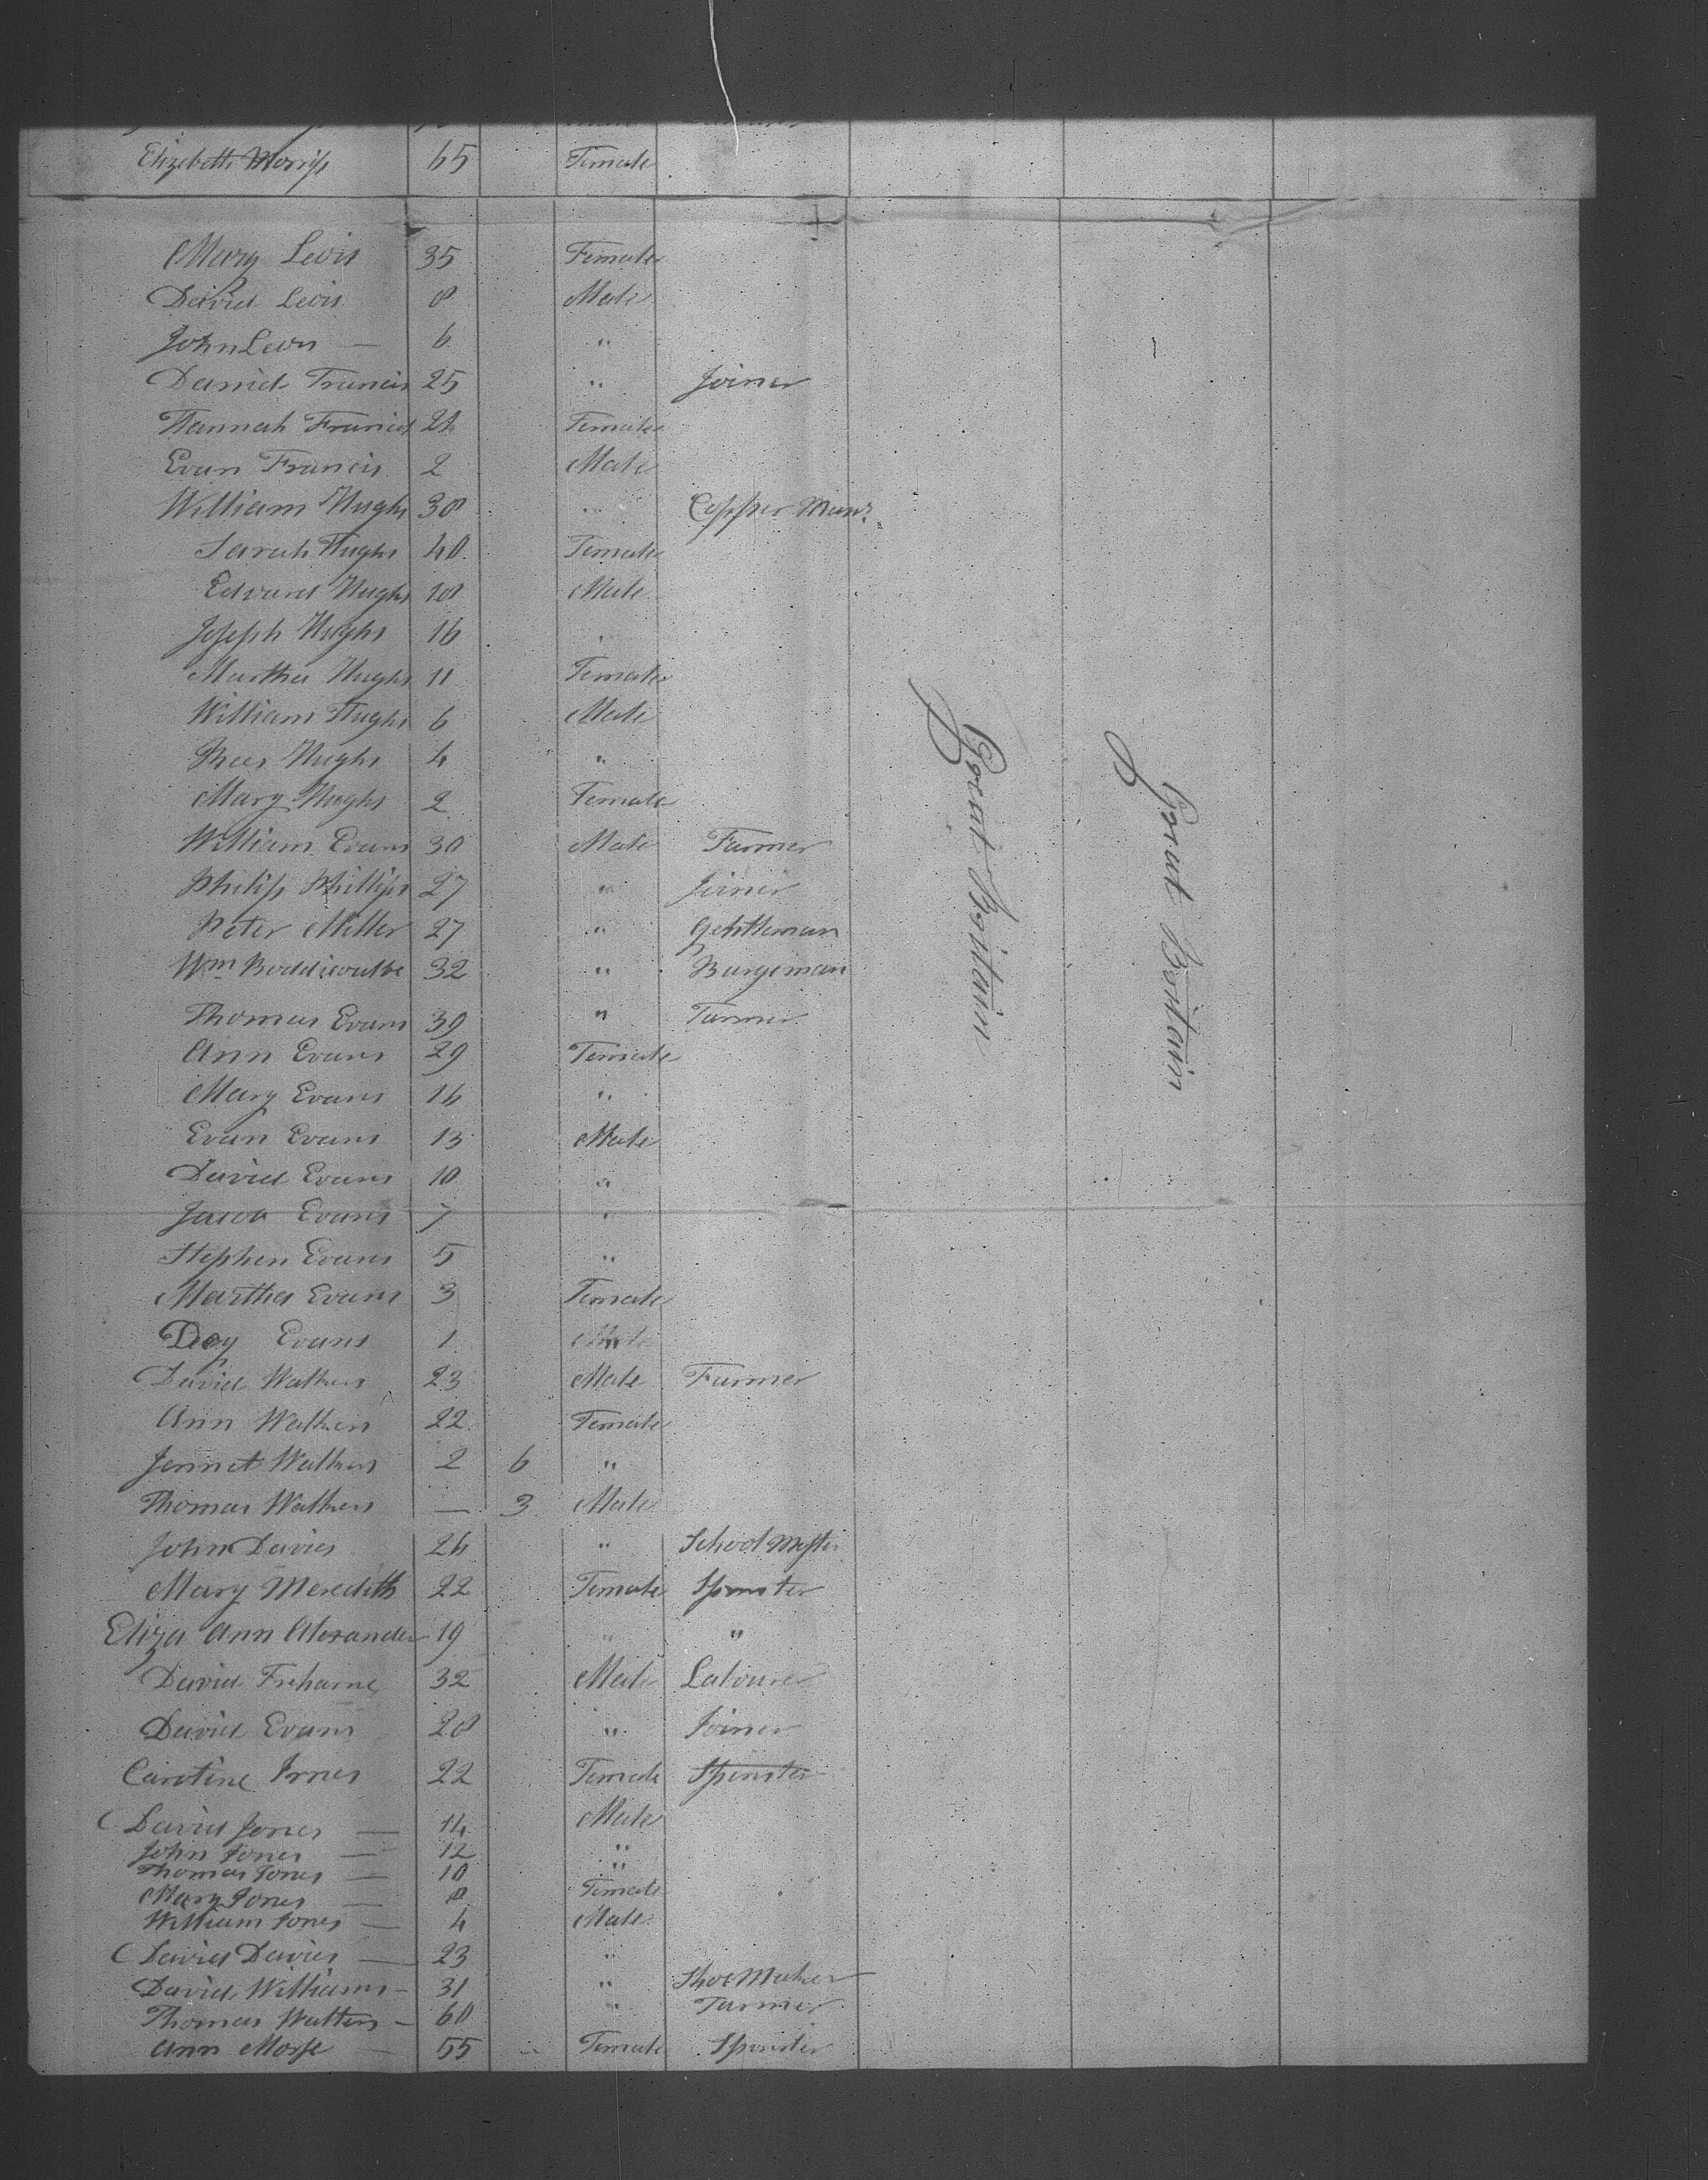 Elizabeth Morriss 65 Female
Mary Lewis 35 Female
David Lewis 8 Male
John Lewis — 6 "
Daniel Francis 25 " Joiner
Hannah Francis 21 Female
Evan Francis 2 Male
William Hughs 38 " Copper Man.
Sarah Hughs 40 Female
Edward Hughs 18 Male
Joseph Hughs 16 "
Martha Hughs 11 Female
William Hughs 6 Male
Rees Hughs 4 "
Mary Hughs 2 Female
William Evans 30 Male Farmer
Philip Phillips 27 " Joiner
Peter Miller 27 " Gentleman
Wm 32 " Bargeman
Thomas Evans 39 " Farmer
Ann Evans 29 Female
Mary Evans 16 "
Evan Evans 13 Male
David Evans 10 "
Evans 7 "
Stephen Evans 5 "
Martha Evans 3 Female
Evans 1 "
David Watkins 23 Male Farmer
Ann Watkins 22 Female
Jennet Watkins 2 6 "
Thomas Watkins — 3 Male
John Davies 26 " School Master
Mary Meredith 22 Female Spinster
Eliza Ann Alexander 19 " "
David Treharne 32 Male Labourer
David Evans 28 " Joiner
Caroline 22 Female Spinster
David Jones — 14 Male
John Jones — 12 "
Thomas Jones — 10 "
Mary Jones — 8 Female
William Jones — 4 Male
David Davies — 23 "
David Williams — 31 " Shoe Maker
Thomas Watkins — 60 " Farmer
Ann Morse — 55 Female Spinster
Great Britain
Great Britain